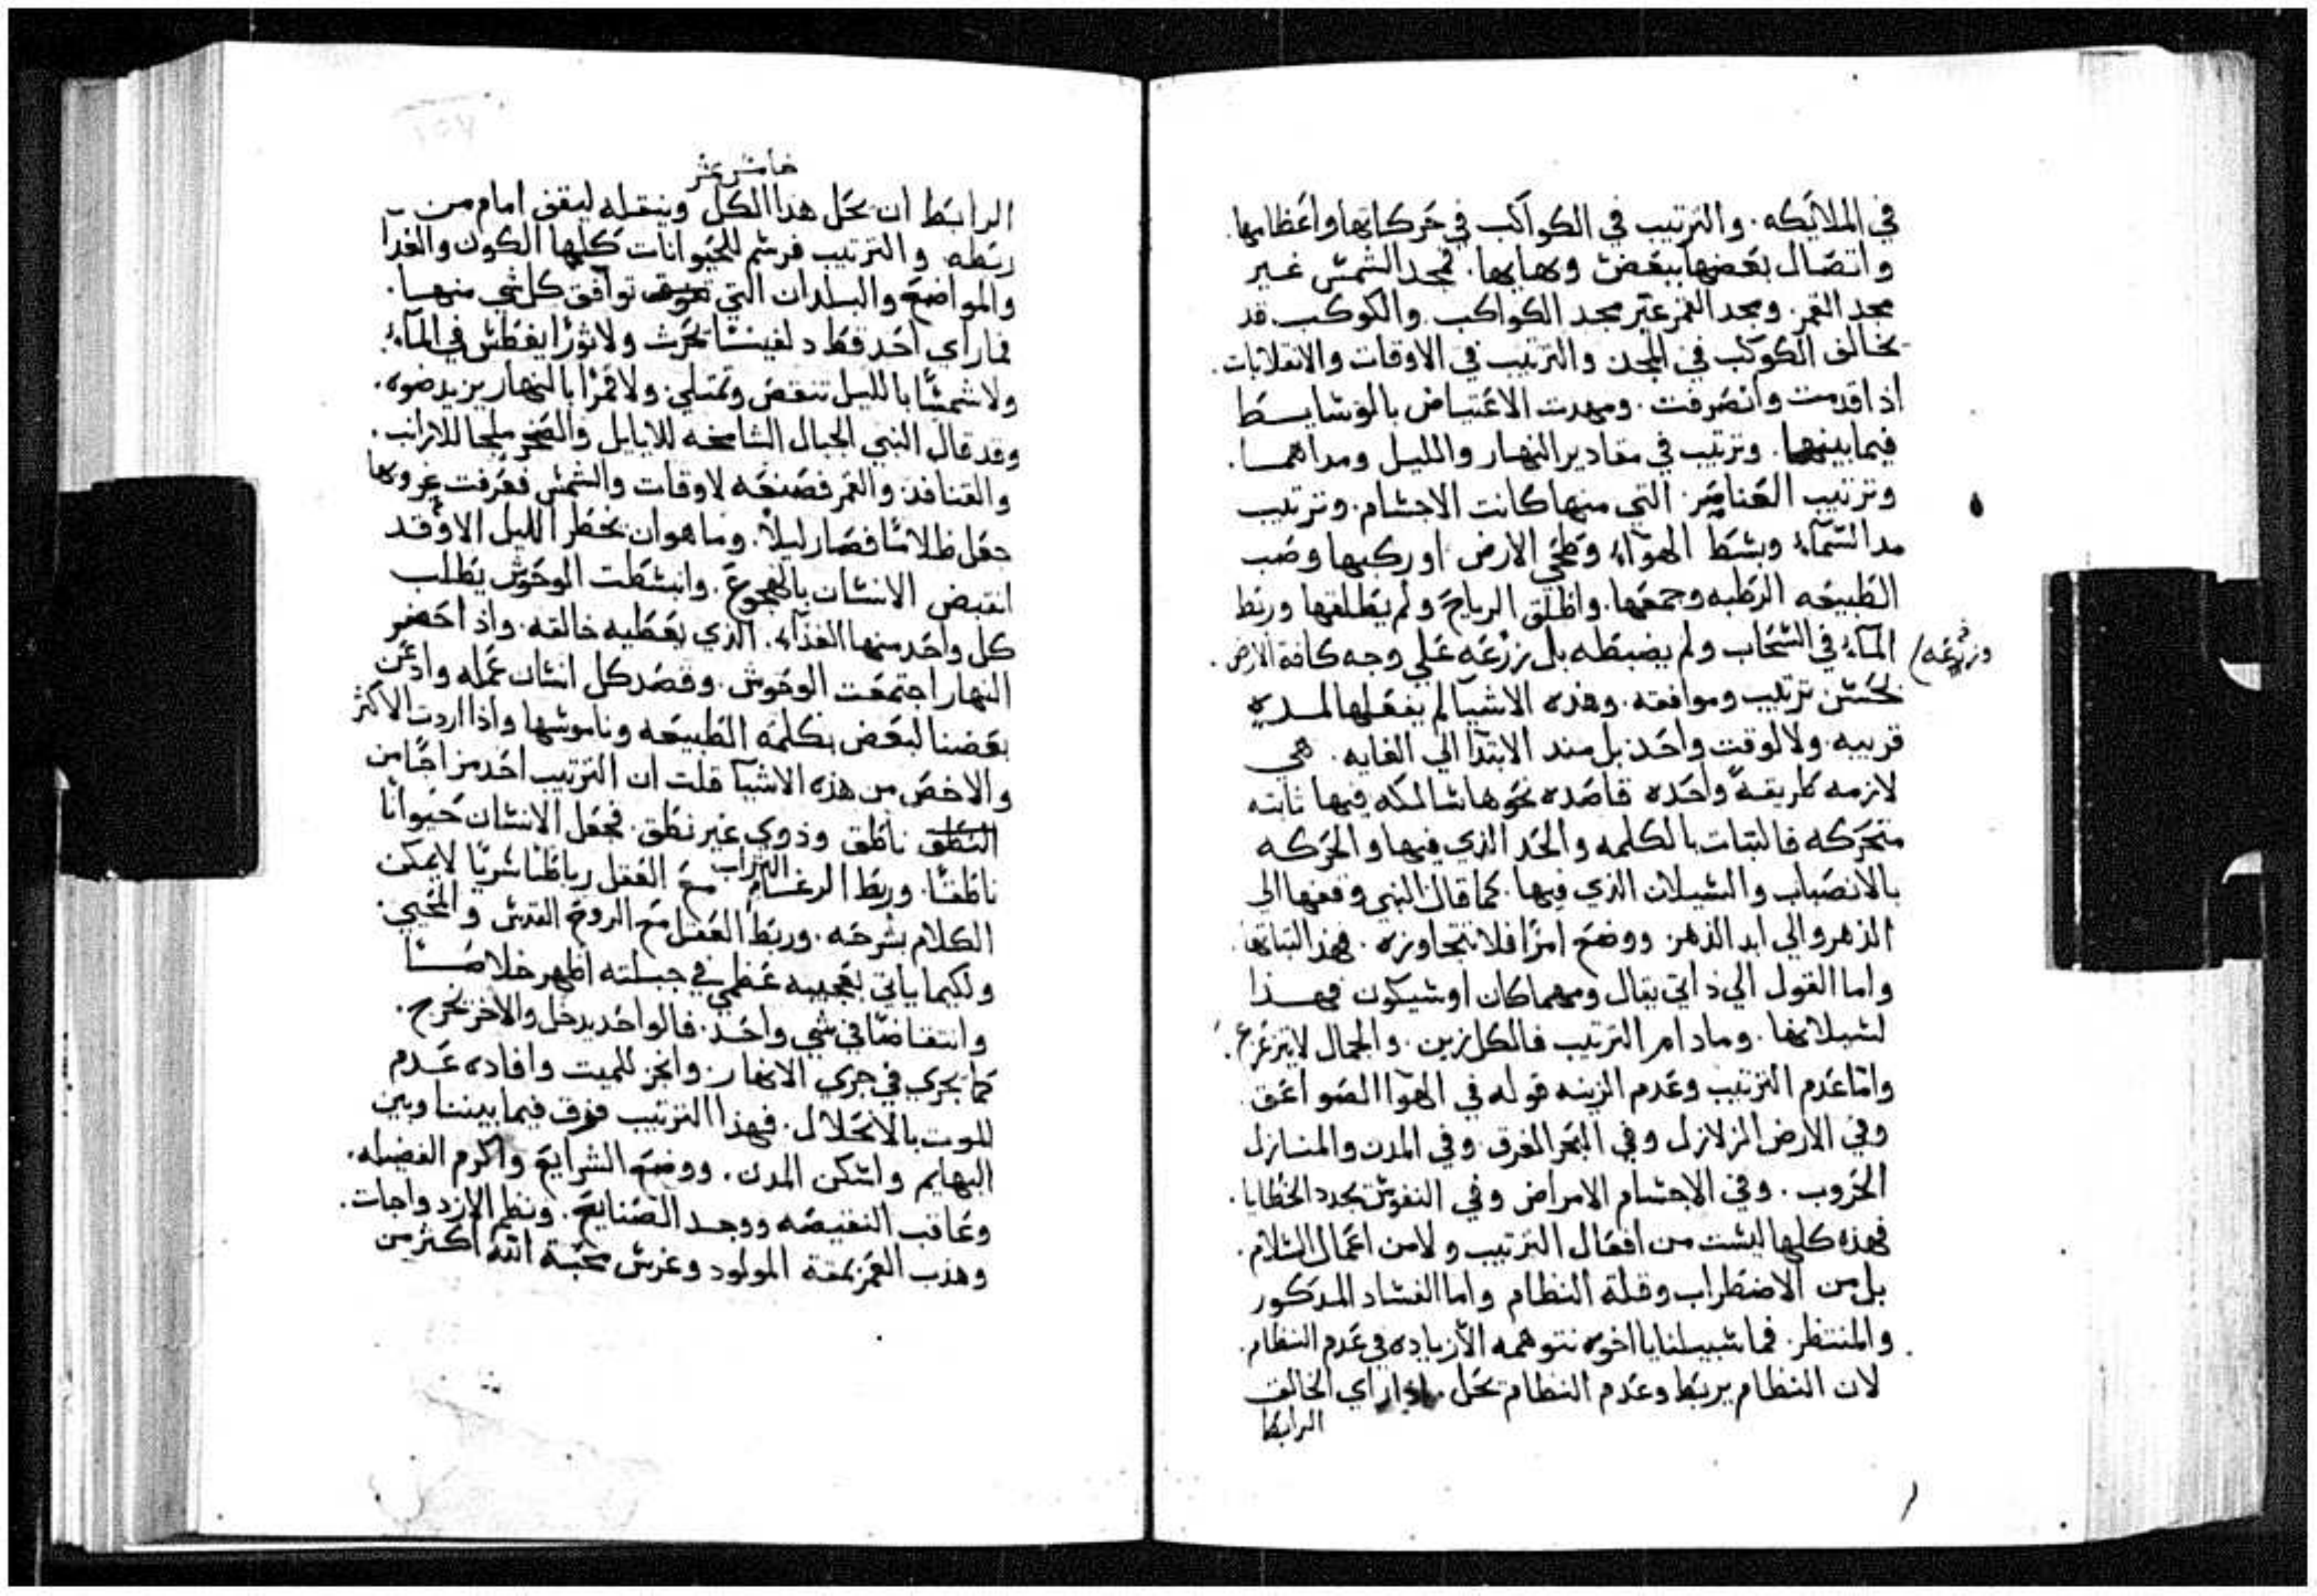 في الملايكه. والترتيب في الكواكب في حركاتها واعظامها.
واتصال بعضها ببعض وبهايها. فمجد الشمس غير
مجد القمر. ومجد القمر غير مجد الكواكب. والكوكب قد
يخالف الكوكب في المجد. والترتيب في الاوقات والانقلابات.
اذا قدمت وانصرفت. ومهدت الاعتياض بالوسايط
فيما بينهما. وترتيب في مقادير النهار والليل ومداهما.
وترتيب العناصر التي منها كانت الاجسام. وترتيب
مد السماء وبسط الهواء وطحي الارض او ركبها وصب
الطبيعه الرطبه وجمعها. واطلق الرياح ولم يطلقها وربط
الماء في السحاب ولم يضبطه بل زرعه علي وجه كافة الارض.
وزرعه
لحسن ترتيب وموافقه. وهذه الاشيا لم يفعلها لمده
قريبه. ولا لوقت واحد بل منذ الابتدا الي الغايه. هي
لازمه طريقةً واحده قاصده نحوها سالكه فيها ثابته
متحركه فالثبات بالكلمه والحد الذي فيها والحركه
بالانصباب والسيلان الذي فيها. كما قال النبي وقفها الي
الدهر والي ابد الدهر. ووضع امرًا فلا تتجاوزه. فهذا لثباتها.
واما القول الي ذاتي يقال ومهما كان او سيكون فهذا
لسيلانها. وما دام الترتيب فالكل زين. والجمال لا يتزعزع.
واما عدم الترتيب وعدم الزينه قوله في الهوا الصواعق.
وفي الارض الزلازل وفي البحر الغرق وفي المدن والمنازل
الحروب. وفي الاجسام الامراض وفي النفوس تجدد الخطايا.
فهذه كلها ليست من افعال الترتيب ولا من اعمال السلام.
بل من الاضطراب وقلة النظام واما الفساد المذكور
والمنتظر. فما سبيلنا يا اخوه نتوهمه الا زياده في عدم النظام.
لان النظام يربط وعدم النظام يحل. اذا راي الخالق
الرابط
خامس عشر
الرابط ان يحل هذا الكل وينقله ليقف امام من
ربطه والترتيب فرسم للحيوانات كلها الكون والغدا
والمواضع والبلدان التي توافق كل شي منها.
فما راي احد قط دلفينسًا يحرث ولا ثورًا يغطس في الماء.
ولا شمسًا بالليل تنقص وتمتلي. ولا قمرًا بالنهار يزيد ضوه.
وقد قال النبي الجبال الشامخه للايايل والصخر ملجا للارانب.
والقنافد. والقمر فصنعه لاوقات والشمس فعرفت غروبها
جعل ظلامًا فصار ليلاً. وما هو ان يخطر الليل الا وقد
انقبض الانسان بالهجوع. وانبسطت الوحوش يطلب
كل واحد منها الغذاء. الذي يعطيه خالقه. واذا حضر
النهار اجتمعت الوحوش. وقصد كل انسان عمله وادعن
بعضنا لبعض بكلمة الطبيعه وناموسها واذا اردت الاكثر
والاخص من هذه الاشيا قلت ان الترتيب احد مزاجًا من
النطق ناطق وذوي غير نطق. فجعل الانسان حيوانًا
ناطقًا. وربط الرغام مع العقل رباطًا سريًا لا يمكن
التراب
الكلام بشرحه. وربط العقل مع الروح القدس والمحيي.
ولكيما ياتي بعجيبه عظمي في جبلته اظهر خلاصًا
وانتقاصًا في شي واحد. فالواحد يدخل والاخر يخرج.
كما يجري في جري الانهار. وانجز للميت وافاده عدم
الموت بالانحلال. فهذا الترتيب فرق فيما بيننا وبين
البهايم واسكن المدن. ووضع الشرايع واكرم الفضيله.
وعاقب النقيصه ووجد الصنايع. ونظم الازدواجات.
وهذب العمر بمقة المولود وغرس محبة الله اكثر من